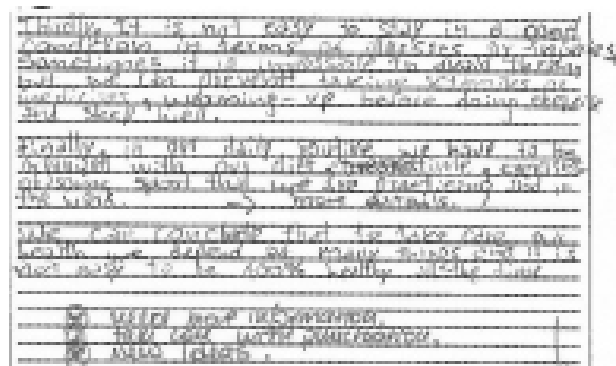 Thirdly, It is not easy to stay in a good
condition in terms of illnesses or injuries,
Sometimes it is impossible to avoid them,
but we can prevent taking vitamins or
medicines, warming-up before doing
and sleep well.
Finally, in our daily routine we have to be
with our diet, exercises
or some sport that we are practicing and in
the work. → more details.
We can conclude that to take care our
health we depend of many things and it is
not easy to be 100% healthy all the time
need more information.
take care with punctuation.